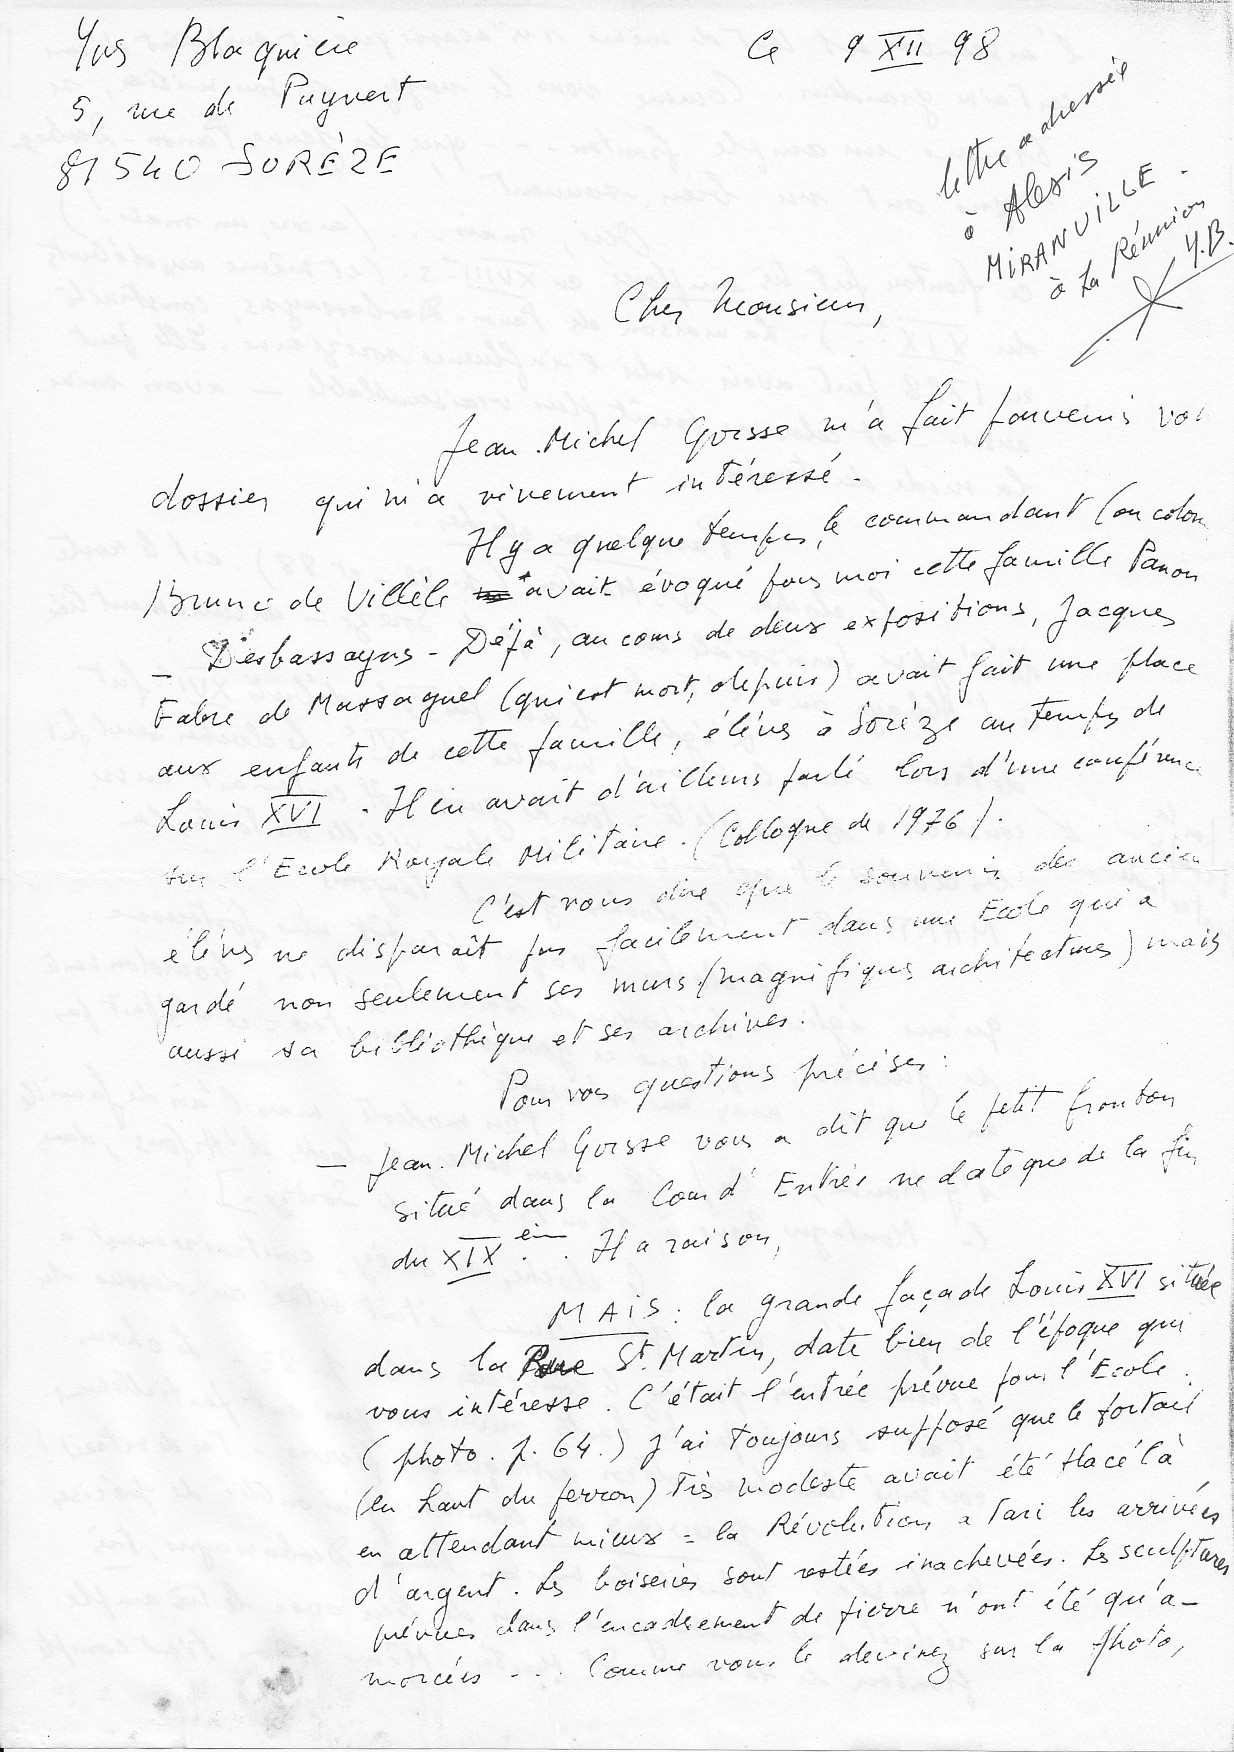 Yves Blaquière
5, rue de Puyvert
81540 SORÈZE
Ce 9 XII 98
lettre adressée
à Alexis
MIRANVILLE.
à La Réunion
Y.B.
Cher Monsieur,
Jean.Michel Gorsse m'a fait parvenir vo
dossier qui m'a vivement intéressé.
Il y a quelque temps, le commandant (ou colon
Bruno de Villèle avait évoqué pour moi cette famille Panon
- Desbassayns - Déjà, au cours de deux expositions, Jacques
Fabre de Massaguel (qui est mort, depuis) avait fait une place
aux enfants de cette famille, élèves à Sorèze au temps de
Louis XVI. Il en avait d'ailleurs parlé lors d'une conférence
sur l'Ecole Royale Militaire. (Colloque de 1976).
C'est vous dire que le souvenir des ancien
élèves ne disparaît pas facilement dans une Ecole qui a
gardé non seulement ses murs (magnifiques architectures) mais
aussi sa bibliothèque et ses archives.
Pour vos questions précises :
— Jean.Michel Gorsse vous a dit que le petit fronton
situé dans la Cour d'Entrée ne date que de la fin
du XIX èm. Il a raison,
MAIS : la grande façade Louis XVI située
dans la Rue St. Martin, date bien de l'époque qui
vous intéresse. C'était l'entrée prévue pour l'Ecole.
(photo. p. 64.) J'ai toujours supposé que le portail
(en haut du perron) très modeste avait été placé là
en attendant mieux = la Révolution a tari les arrivées
d'argent. Les boiseries sont restées inachevées. Les sculptures
prévues dans l'encadrement de pierre n'ont été qu'a-
morcées ... Comme vous le devinez sur la photo,